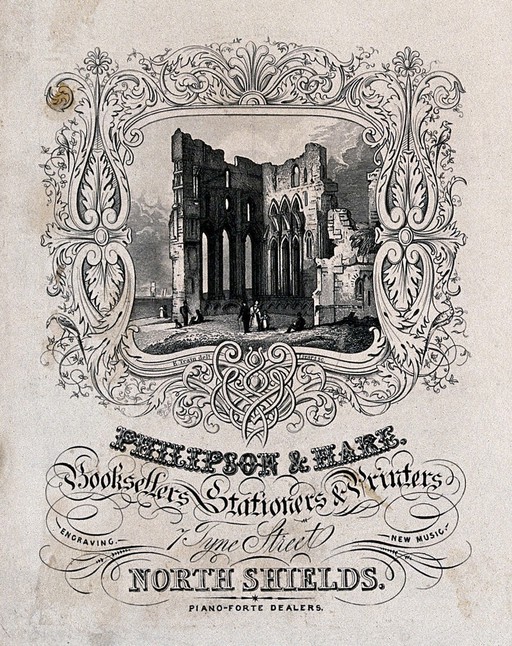 PHILIPSON & HARE.
Booksellers Stationers & Printers
ENGRAVING.
7 Tyne Street
NEW MUSIC.
NORTH SHIELDS.
PIANO-FORTE DEALERS.